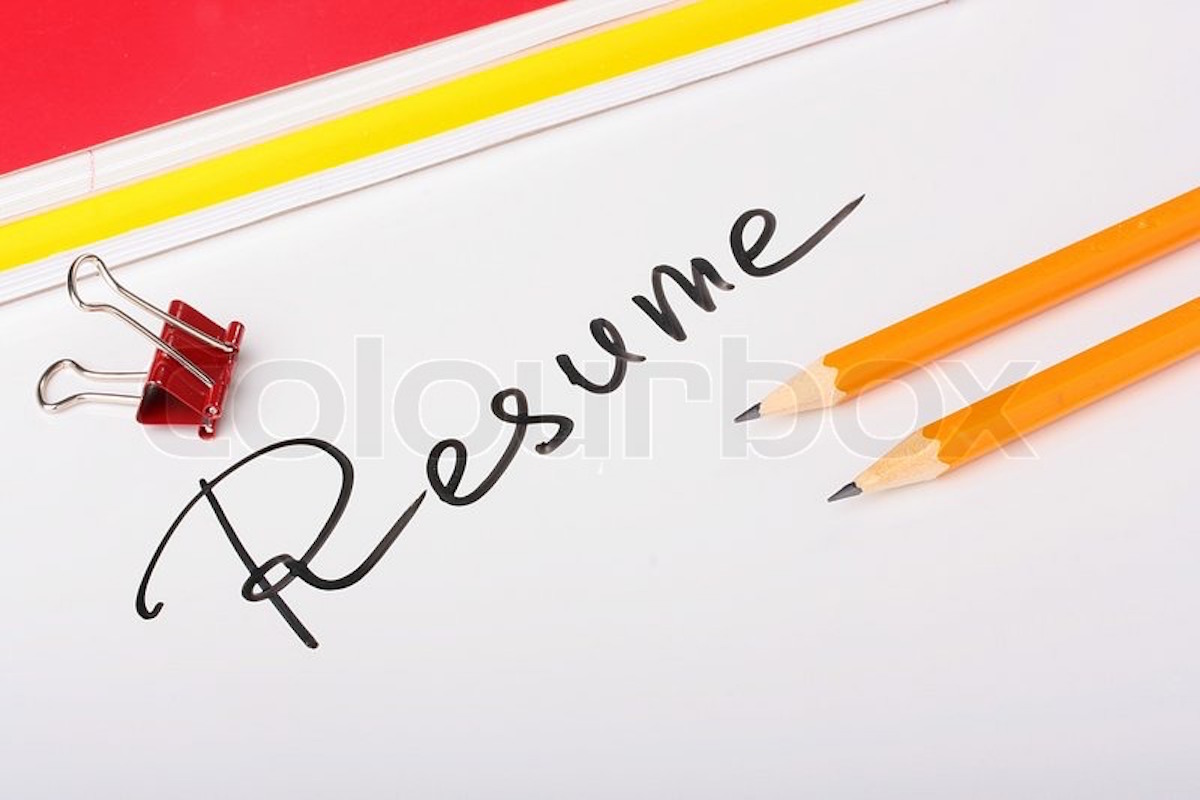 Resume
colourbox